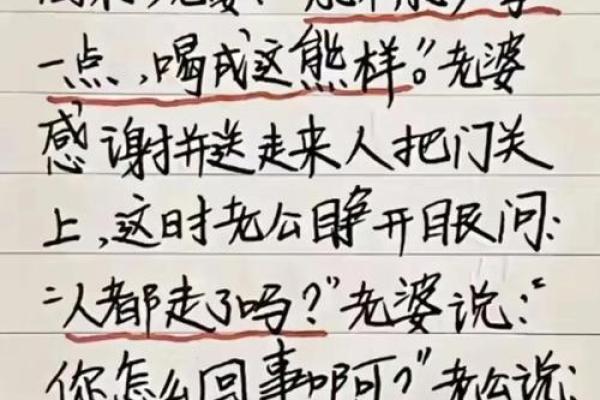 老婆
一点,喝成这熊样。"老婆
感谢并送走来人把门关
上,这时老公睁开眼问:
"人都走了吗?"老婆说:"
你怎么回事啊?"老公说: